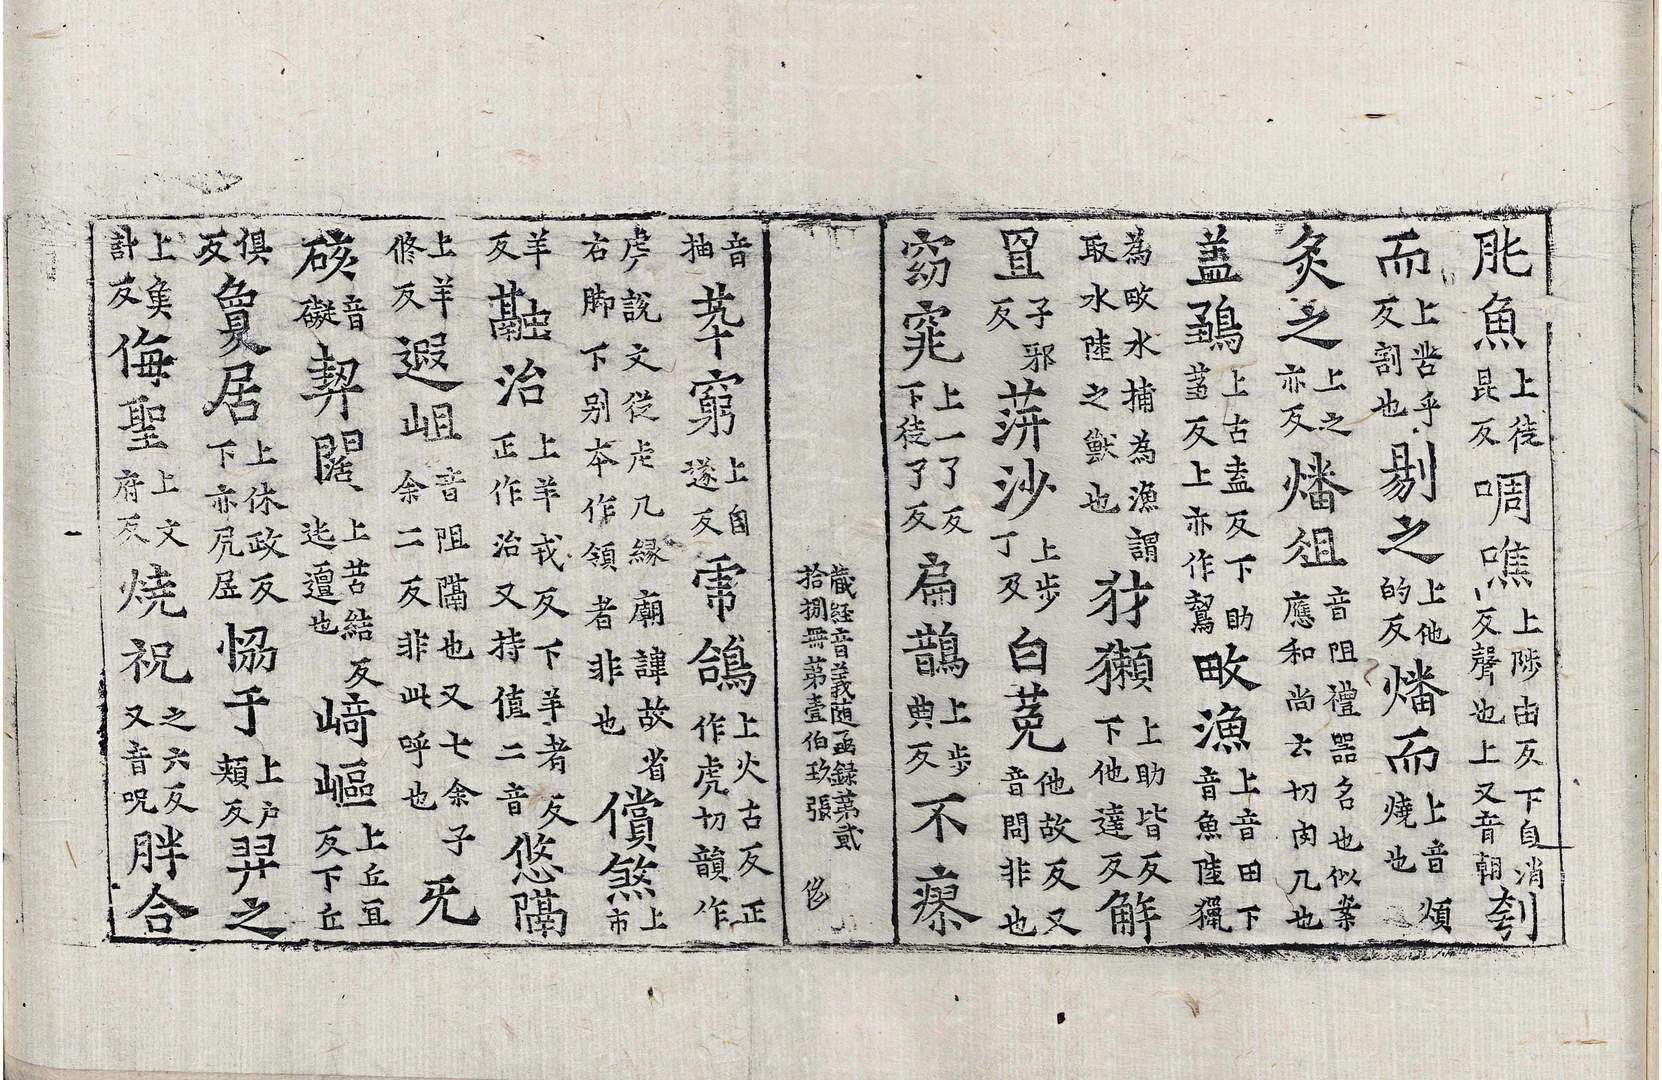 肶魚上徒昆反啁噍上陟由反下自消反聲也上又音朝刳
而上苦乎反割也剔之上他的反燔而上音煩燒也
炙之上之亦反燔俎音阻禮器名也似案應和尚云切肉几也
盖鵎上古盍反下助盖反上亦作鴽畋漁上音田下音魚陸獵
為畋水捕為漁謂取水陸之獸也犲獺上助皆反下他達反解
罝子邪反蓱沙上步丁反白菟他故反又音問非也
窈窕上一了反下徒了反扁鵲上步典反不瘳
藏経音義随函録苐貳拾捌冊苐壹伯玖張 侈
音抽茕窮上自遂反虖鴿上火古反正作虎切韻作
虎說文從虍几縁廟諱故省右脚下別本作領者非也償煞上市
羊反融治上羊戎反下羊者反正作冶又持值二音悠隔
上羊修反遐岨音阻隔也又七余子余二反非此呼也旡
硋音礙契闊上苦結反迯邅也﨑嶇上丘宜反下丘
俱反敻居上休政反下亦凥㞐恊于上戶頬反羿之
上奚計反侮聖上文府反燒祝之六反又音呪胖合